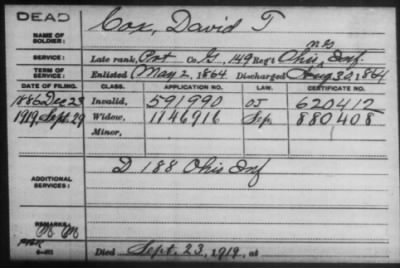 DEAD
NAME OF SOLDIER: Cox, David T
SERVICE: Late rank, Pvt Co. G, 149 Reg't Ohio NG Inf.
TERM OF SERVICE: Enlisted May 2, 1864 Discharged Aug 30, 1864
DATE OF FILING. CLASS. APPLICATION NO. LAW. CERTIFICATE NO.
1886 Dec 23 Invalid, 591990 620412
1919, Sept. 29 Widow, 1146916 Sep. 880408
Minor,
ADDITIONAL SERVICES: D 188 Ohio Inf
REMARKS:
Died Sept. 23, 1919, at